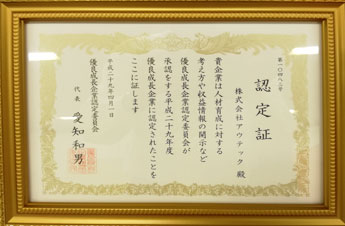 認定証
株式会社アウテック 殿
貴企業は人材育成に対する
考え方や収益情報の開示など
優良成長企業認定委員会が
承認をする平成二十九年度
優良成長企業に認定されたことを
ここに証します
平成二十九年四月一日
優良成長企業認定委員会
代表 愛知和男